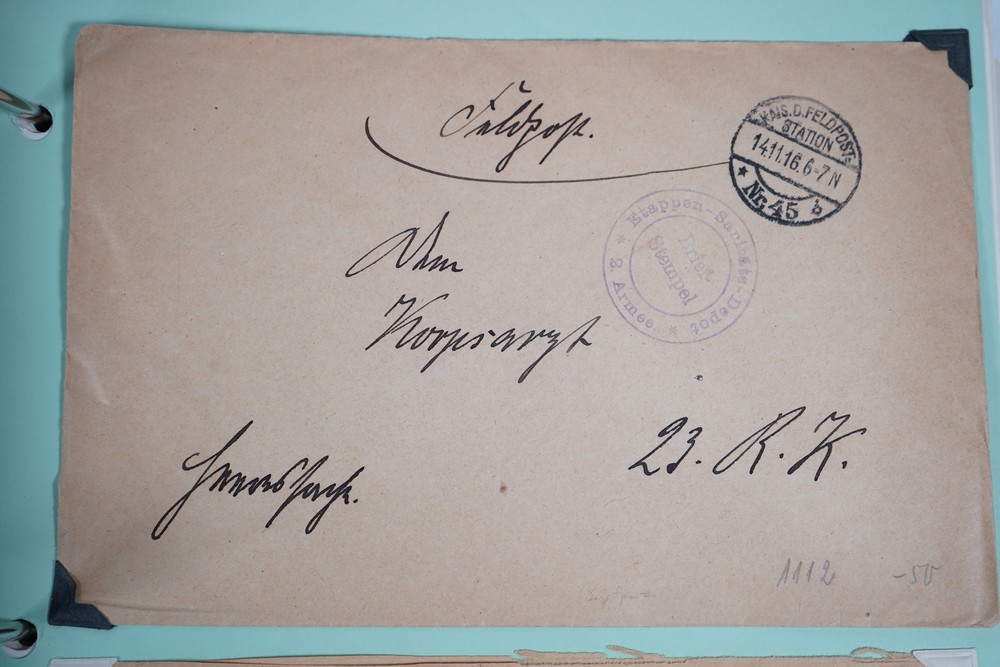 Feldpost.
KAIS. D. FELDPOST-
STATION
14.11.16. 6-7 N
* Nr. 45 b
* Etappen-Sanitäts-Depot * 2. Armee
Brief
Stempel
Dem
Korpsarzt
23. R. K.
Heeressache.
1112 -50